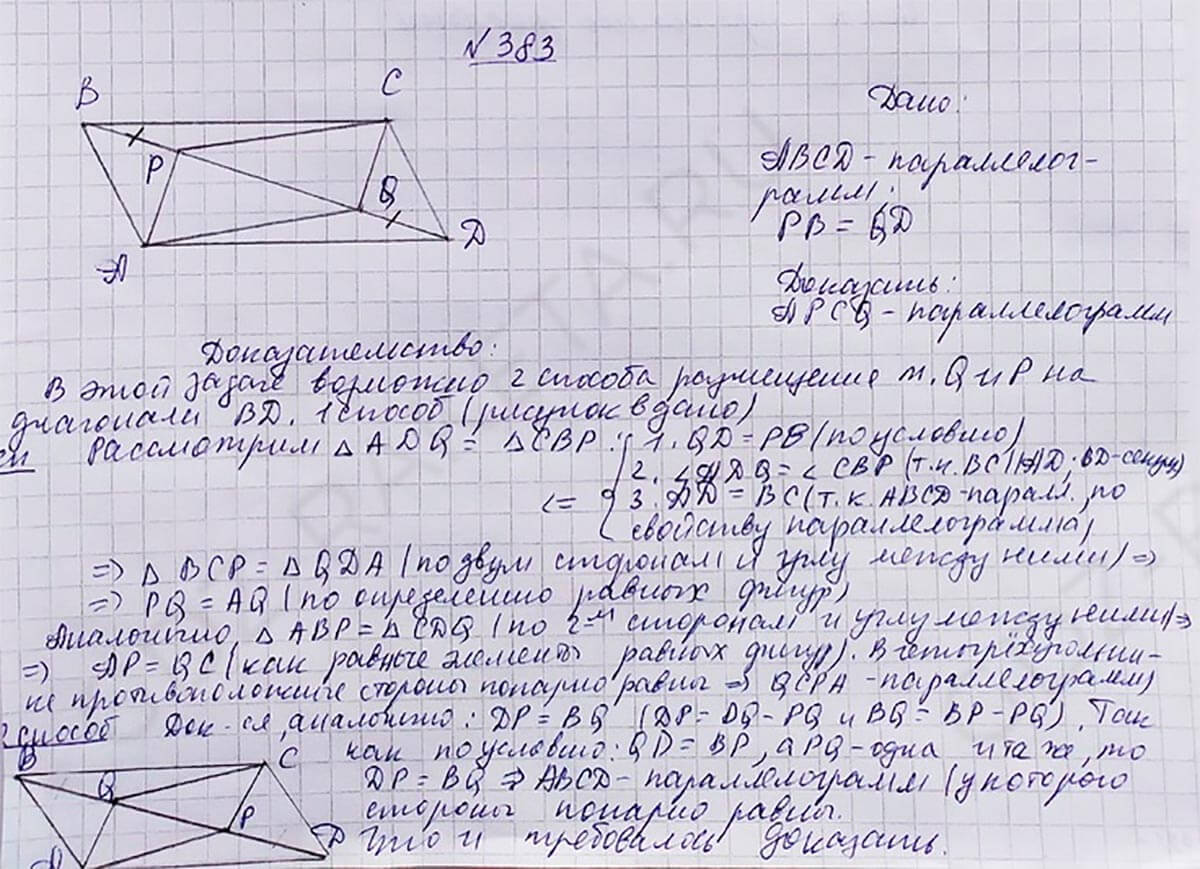 №383
B C
P
Q
A D
Дано:
ABCD - параллелог-
рамм;
PB = QD
Доказать:
APCQ - параллелограмм
Доказательство:
В этой задаче возможно 2 способа размещение т. Q и P на
диагонали BD. 1 способ (рисунок в дано)
Рассмотрим △ADQ = △CBP: 1. QD = PB (по условию)
2. ∠ADQ = ∠CBP (т.к. BC || AD; BD - секущ)
<= 3. AD = BC (т.к. ABCD - паралл., по
свойству параллелограмма)
=> △BCP = △QDA (по двум сторонам и углу между ними) =>
=> PQ = AQ (по определению равных фигур)
Аналогично, △ABP = △CDQ (по 2-м сторонам и углу между ними) =>
=> AP = QC (как равные элементы равных фигур). В четырёхугольни-
ке противоположные стороны попарно равны => QCPA - параллелограмм)
способ Док-ся, аналогично: DP = BQ (DP = DQ - PQ и BQ = BP - PQ). Так
как по условию: QD = BP, а PQ - одна и та же, то
DP = BQ => ABCD - параллелограмм (у которого
стороны попарно равны.
Что и требовалось доказать.
B C
Q
P
A D